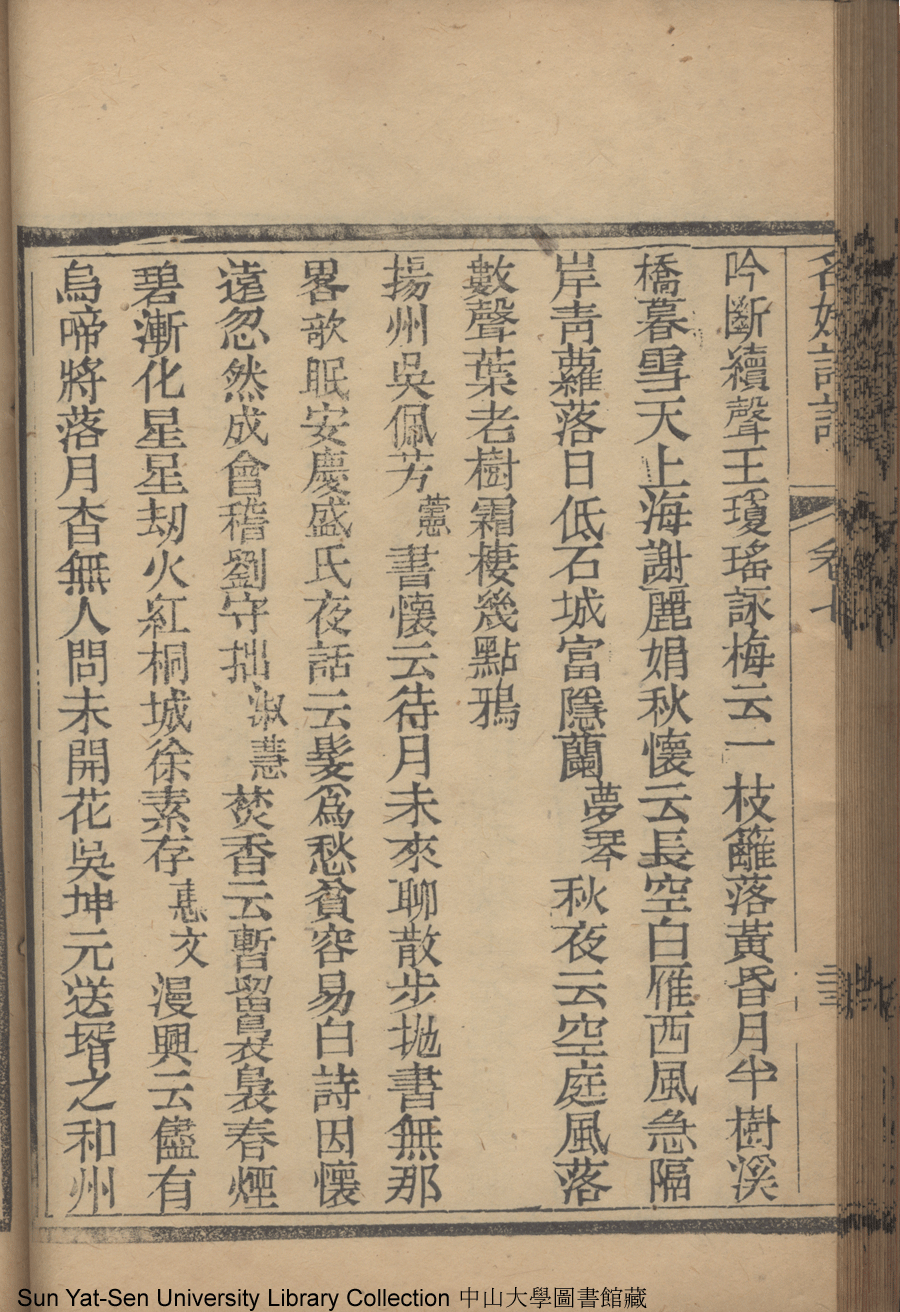 名媛詩話
卷七
三
吟斷續聲王瓊瑤詠梅云一枝籬落黃昏月半樹溪
橋暮雪天上海謝麗娟秋懷云長空白雁西風急隔
岸青蘿落日低石城富隱蘭夢琴秋夜云空庭風落
數聲葉老樹霜棲幾點鴉
揚州吳佩芳蕙書懷云待月未來聊散步拋書無那
畧歌眠安慶盛氏夜話云髮為愁貧容易白詩因懷
遠忽然成會稽劉守拙淑慧焚香云暫留裊裊春煙
碧漸化星星劫火紅桐城徐素存惠文漫興云儘有
烏啼將落月杳無人問未開花吳坤元送壻之和州
Sun Yat-Sen University Library Collection 中山大學圖書館藏